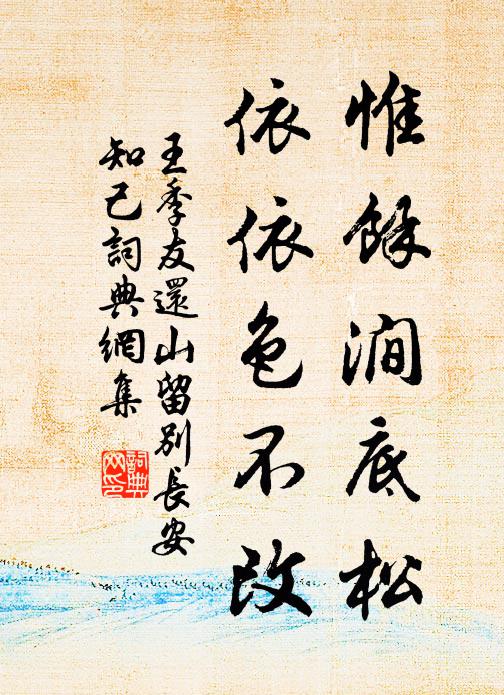 惟餘澗底松
依依色不改
王季友還山留別長安
知己詞典網集
詞典
网印